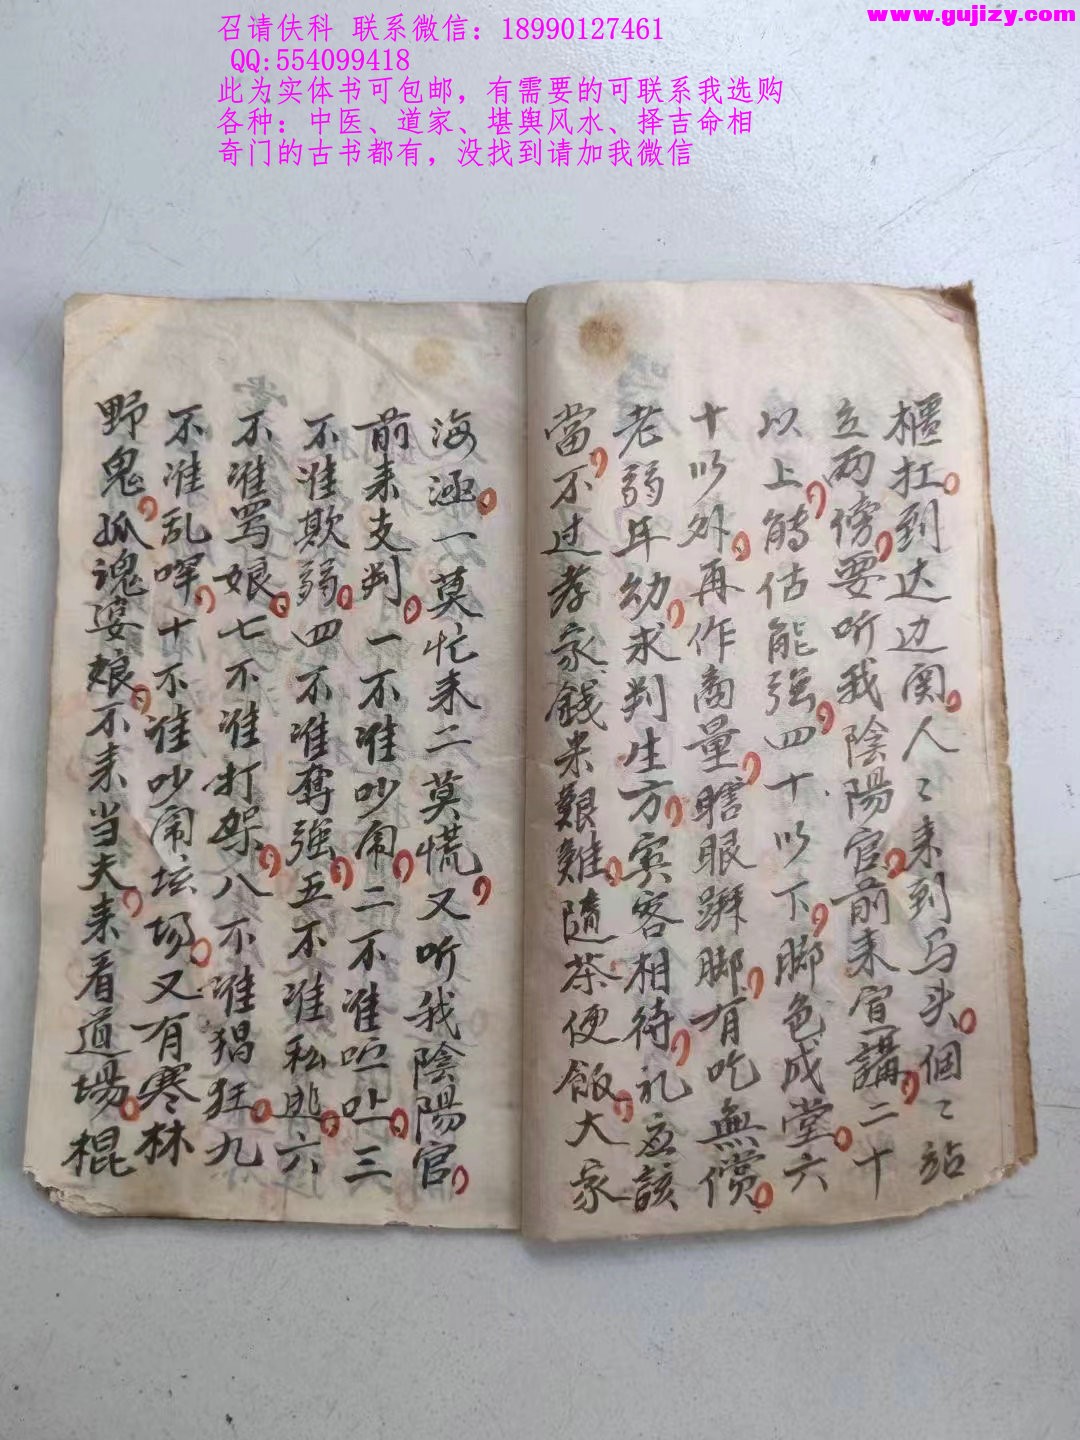 召请伕科 联系微信：18990127461
QQ:554099418
此为实体书可包邮，有需要的可联系我选购
各种：中医、道家、堪舆风水、择吉命相
奇门的古书都有，没找到请加我微信
www.gujizy.com
櫃扛到达边関人〻来到马头個〻站
立两傍要听我陰陽官前来宣講二十
以上能估能强四十以下脚色成堂六
十以外再作商量瞎眼跰脚有吃無償
老弱年幼求判生方賔客相待礼应該
當不过孝家錢米艱難随茶便飯大家
海涵一莫忙来二莫慌又听我陰陽官
前来支判一不准吵闹二不准吐三
不准欺弱四不准奪强五不准私逃六
不准罵娘七不准打架八不准猖狂九
不准乱啤十不准吵闹坛场又有寒林
野鬼孤魂婆娘不来当夫来看道場棍